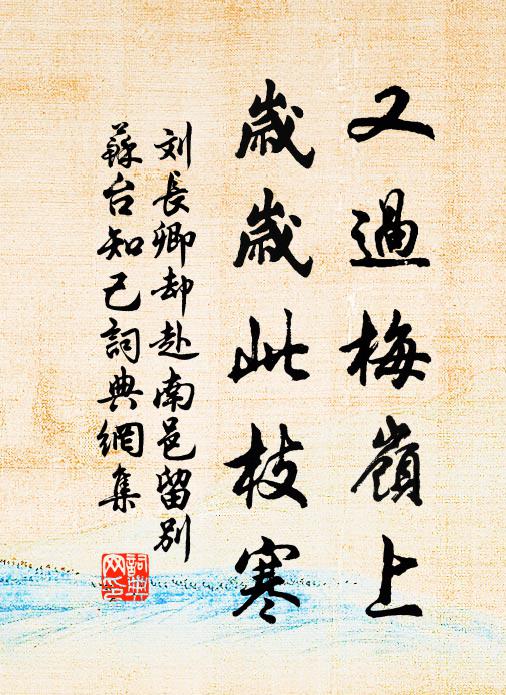 又過梅嶺上
歲歲此枝寒
刘長卿却赴南邑留别
蘇台知己詞典網集